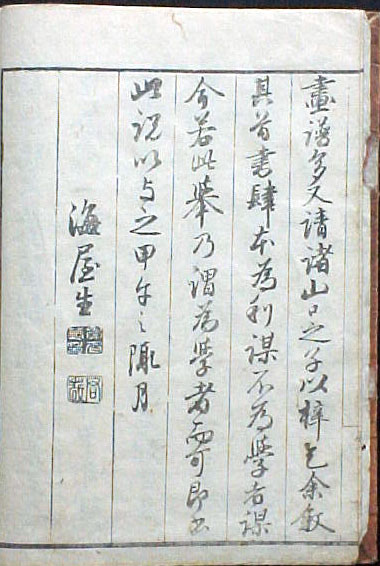 畫譜多又請諸山口之子以梓乞余敘
其首書肆本為利謀不為學者謀
今若此舉乃謂為學者而可即書
此説以与之甲午之陬月
海屋生